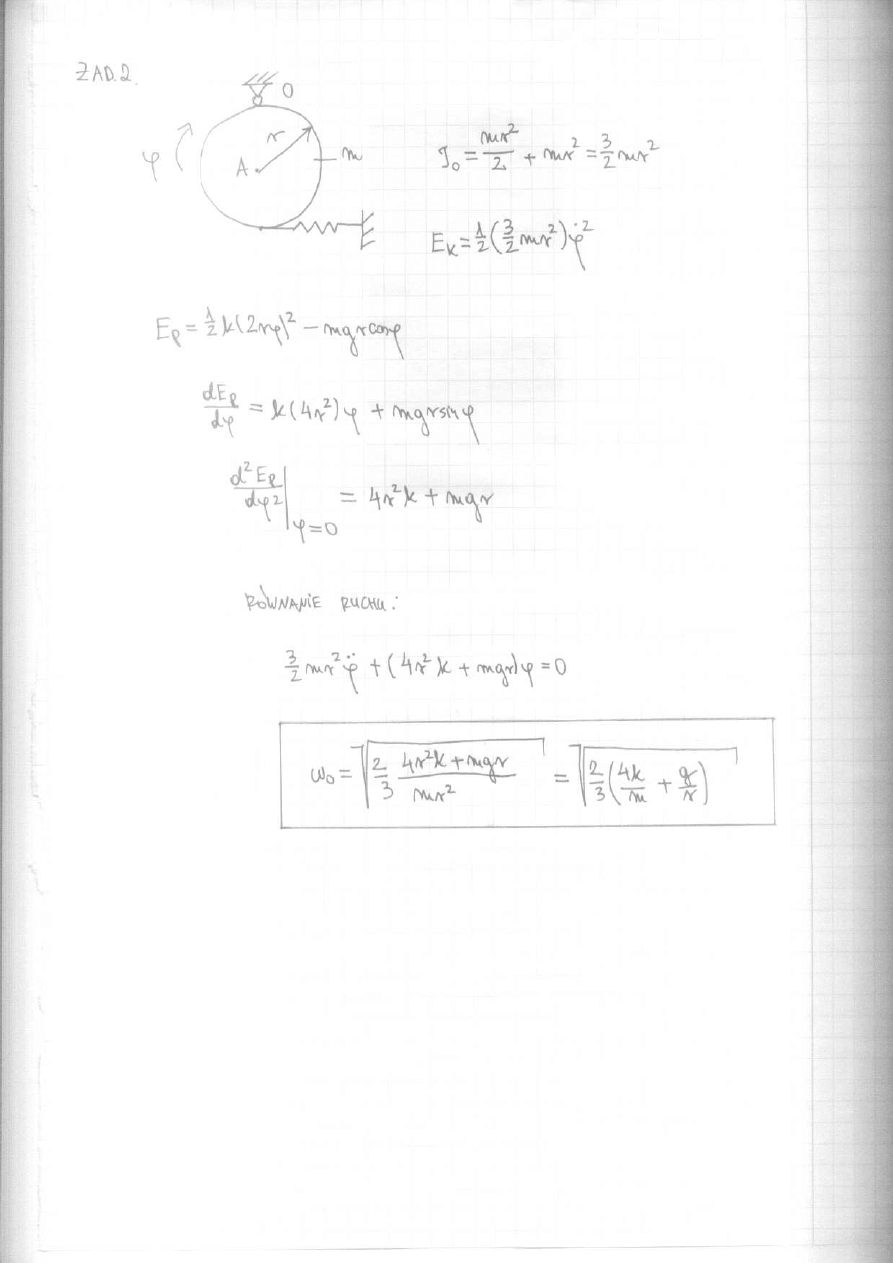 ZAD.2.
O
φ
r
A
m
J₀ = mr²/2 + mr² = 3/2 mr²
Eₖ = 1/2 (3/2 mr²) φ̇²
Eₚ = 1/2 k(2rφ)² − mgr cosφ
dEₚ/dφ = k(4r²)φ + mgr sinφ
d²Eₚ/dφ² |φ=0 = 4r²k + mgr
RÓWNANIE RUCHU:
3/2 mr² φ̈ + (4r²k + mgr)φ = 0
ω₀ = √(2/3 (4r²k + mgr)/mr²) = √(2/3 (4k/m + g/r))